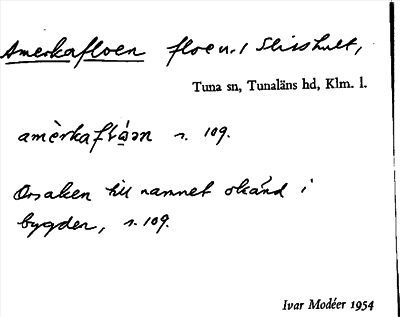 Amerkafloen floe n. i Slisshult,
Tuna sn, Tunaläns hd, Klm. l.
amèrkaflóən s. 109.
Orsaken till namnet okänd i
bygden, s. 109.
Ivar Modéer 1954